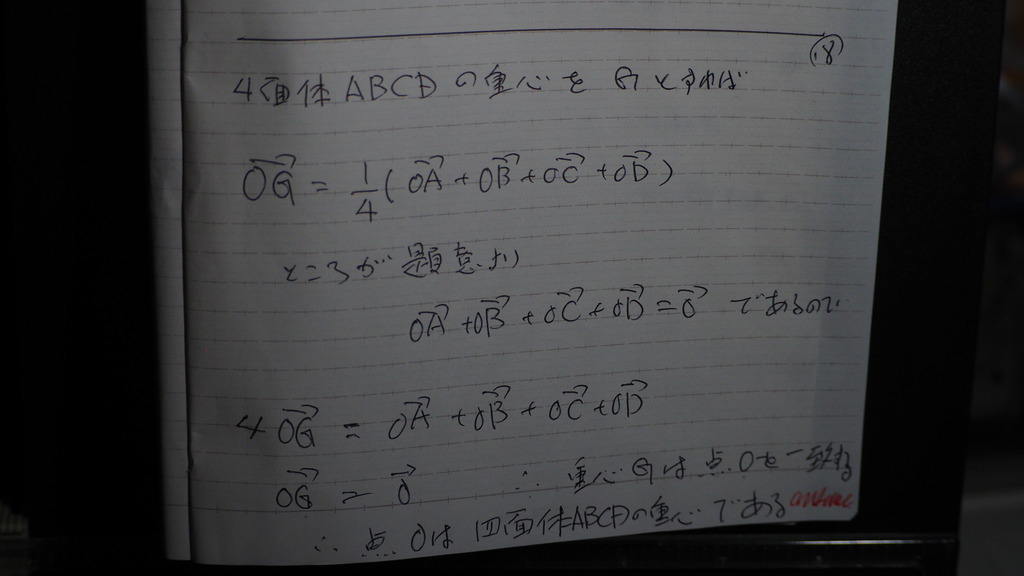 (18)
4面体ABCDの重心をGとすれば
\overrightarrow{OG} = \frac{1}{4}(\overrightarrow{OA} + \overrightarrow{OB} + \overrightarrow{OC} + \overrightarrow{OD})
ところが題意より
\overrightarrow{OA} + \overrightarrow{OB} + \overrightarrow{OC} + \overrightarrow{OD} = \vec{0} であるので
4\overrightarrow{OG} = \overrightarrow{OA} + \overrightarrow{OB} + \overrightarrow{OC} + \overrightarrow{OD}
\overrightarrow{OG} = \vec{0} ∴ 重心Gは点Oと一致する
∴ 点Oは四面体ABCDの重心である